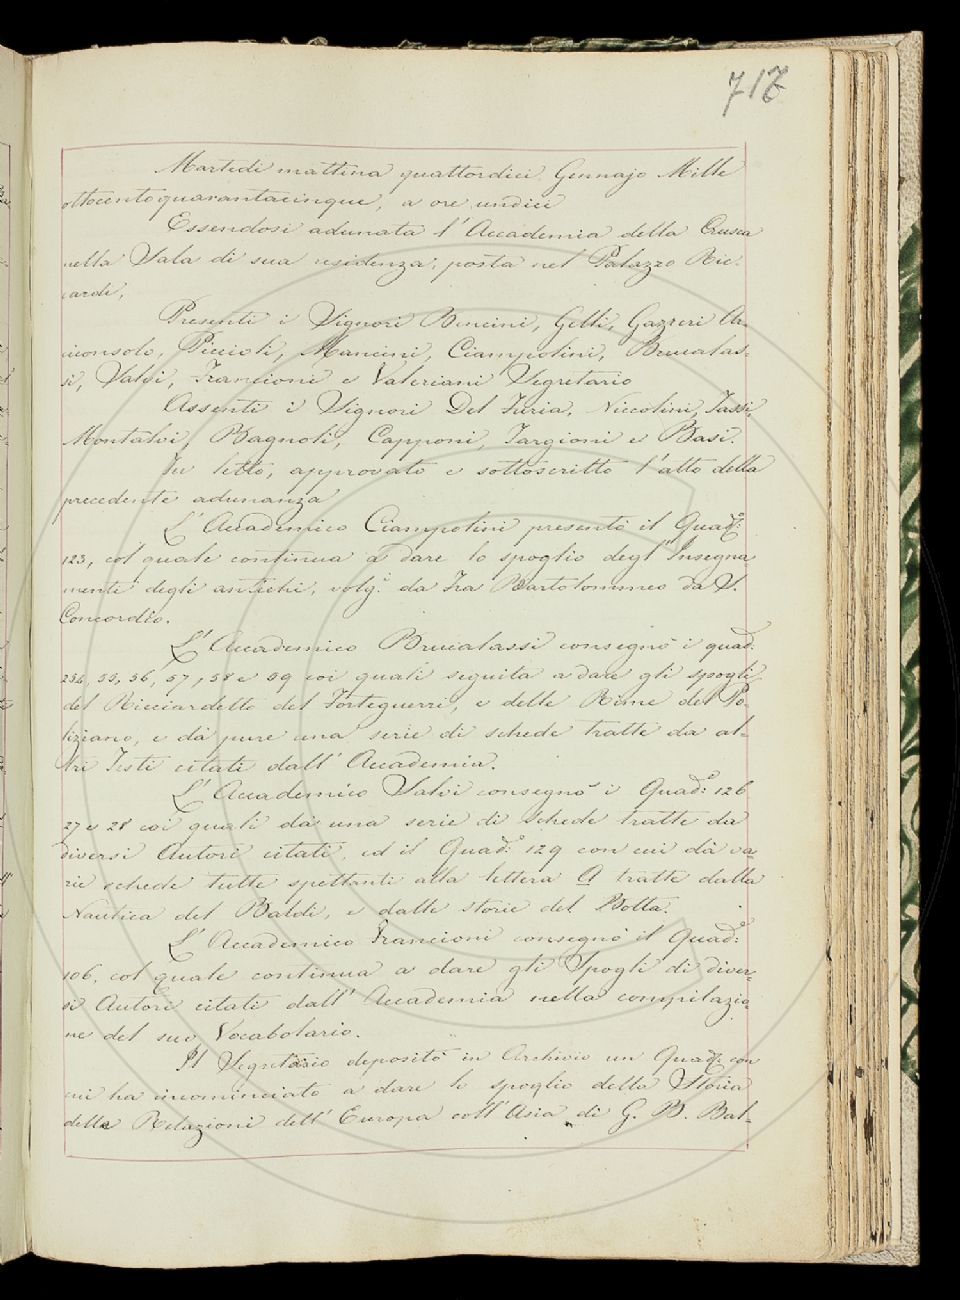 717
Martedì mattina quattordici Gennajo Mille
ottocento quarantacinque, a ore undici
Essendosi adunata l'Accademia della Crusca
nella Sala di sua residenza, posta nel Palazzo Ric-
cardi,
Presenti i Signori Bencini, Gelli, Gazzeri Ar-
ciconsolo, Piccioli, Mancini, Ciampolini, Brucalas-
si, Salvi, Francioni e Valeriani Segretario
Assenti i Signori Del Furia, Niccolini, Tassi,
Montalvi, Bagnoli, Capponi, Targioni e Basi.
Fu letto, approvato e sottoscritto l'atto della
precedente adunanza
L'Accademico Ciampolini presentò il Quad.º
123, col quale continua a dare lo spoglio degl'Insegna
menti degli antichi, volg.i da Fra Bartolommeo da S.
Concordio.
L'Accademico Brucalassi consegnò i quad.i
254, 55, 56, 57, 58 e 59 coi quali seguita a dare gli spogli
del Ricciardetto del Forteguerri, e delle Rime del Po-
liziano, e dà pure una serie di schede tratte da al-
tri Testi citati dall'Accademia.
L'Accademico Salvi consegnò i Quad.i 126
27 e 28 coi quali dà una serie di schede tratte da
diversi Autori citati, ed il Quad.º 129 con cui dà va-
rie schede tutte spettanti alla lettera A tratte dalla
Nautica del Baldi, e dalle storie del Botta.
L'Accademico Francioni consegnò il Quad.º
106, col quale continua a dare gli Spogli di diver-
si Autori citati dall'Accademia nella compilazio-
ne del suo Vocabolario.
Il Segretario depositò in Archivio un Quad.º con
cui ha incominciato a dare lo spoglio della Storia
delle Relazioni dell'Europa coll'Asia di G. B. Bal-